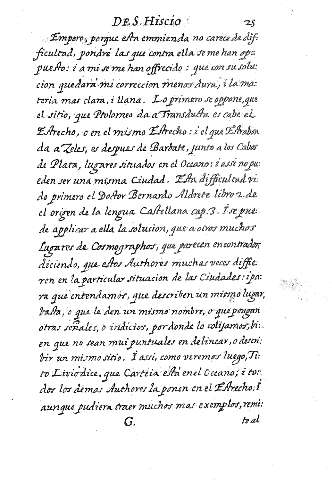 DE. S. Hiscio 25
Empero, porque esta emmienda no carece de dif-
ficultad, pondré las que contra ella se me han opu-
puesto: i a mi se me han offrecido: que con su solu-
cion quedará mi correccion menos dura, i la ma-
teria mas clara, i llana. Lo primero se oppone, que
el sitio, que Ptolomeo da a Transducta es cabe el
Estrecho, o en el mismo Estrecho: i el que Estrabon
da a Zoles, es despues de Barbate, junto a los Cabos
de Plata, lugares situados en el Oceano: i assi no pu-
eden ser una misma Ciudad. Esta difficultad vi-
do primero el Doctor Bernardo Aldrete libro 2. de
el origen de la lengua Castellana cap. 3. I se pue-
de applicar a ella la solucion, que a otros muchos
Lugares de Cosmographos, que parecen encontrados,
diciendo, que estos Authores muchas veces diffie-
ren en la particular situacion de las Ciudades: i pa-
ra que entendamos, que describen un mismo lugar,
basta, o que le den un mismo nombre, o que pongan
otras señales, o indicios, por donde lo colijamos, bi-
en que no sean mui puntuales en delinear, o descri-
bir un mismo sitio. I assi, como veremos luego, Ti-
to Livio dice, que Carteia está en el Oceano; i to-
dos los demas Authores la ponen en el Estrecho; I
aunque pudiera traer muchos mas exemplos, remi-
G. to al